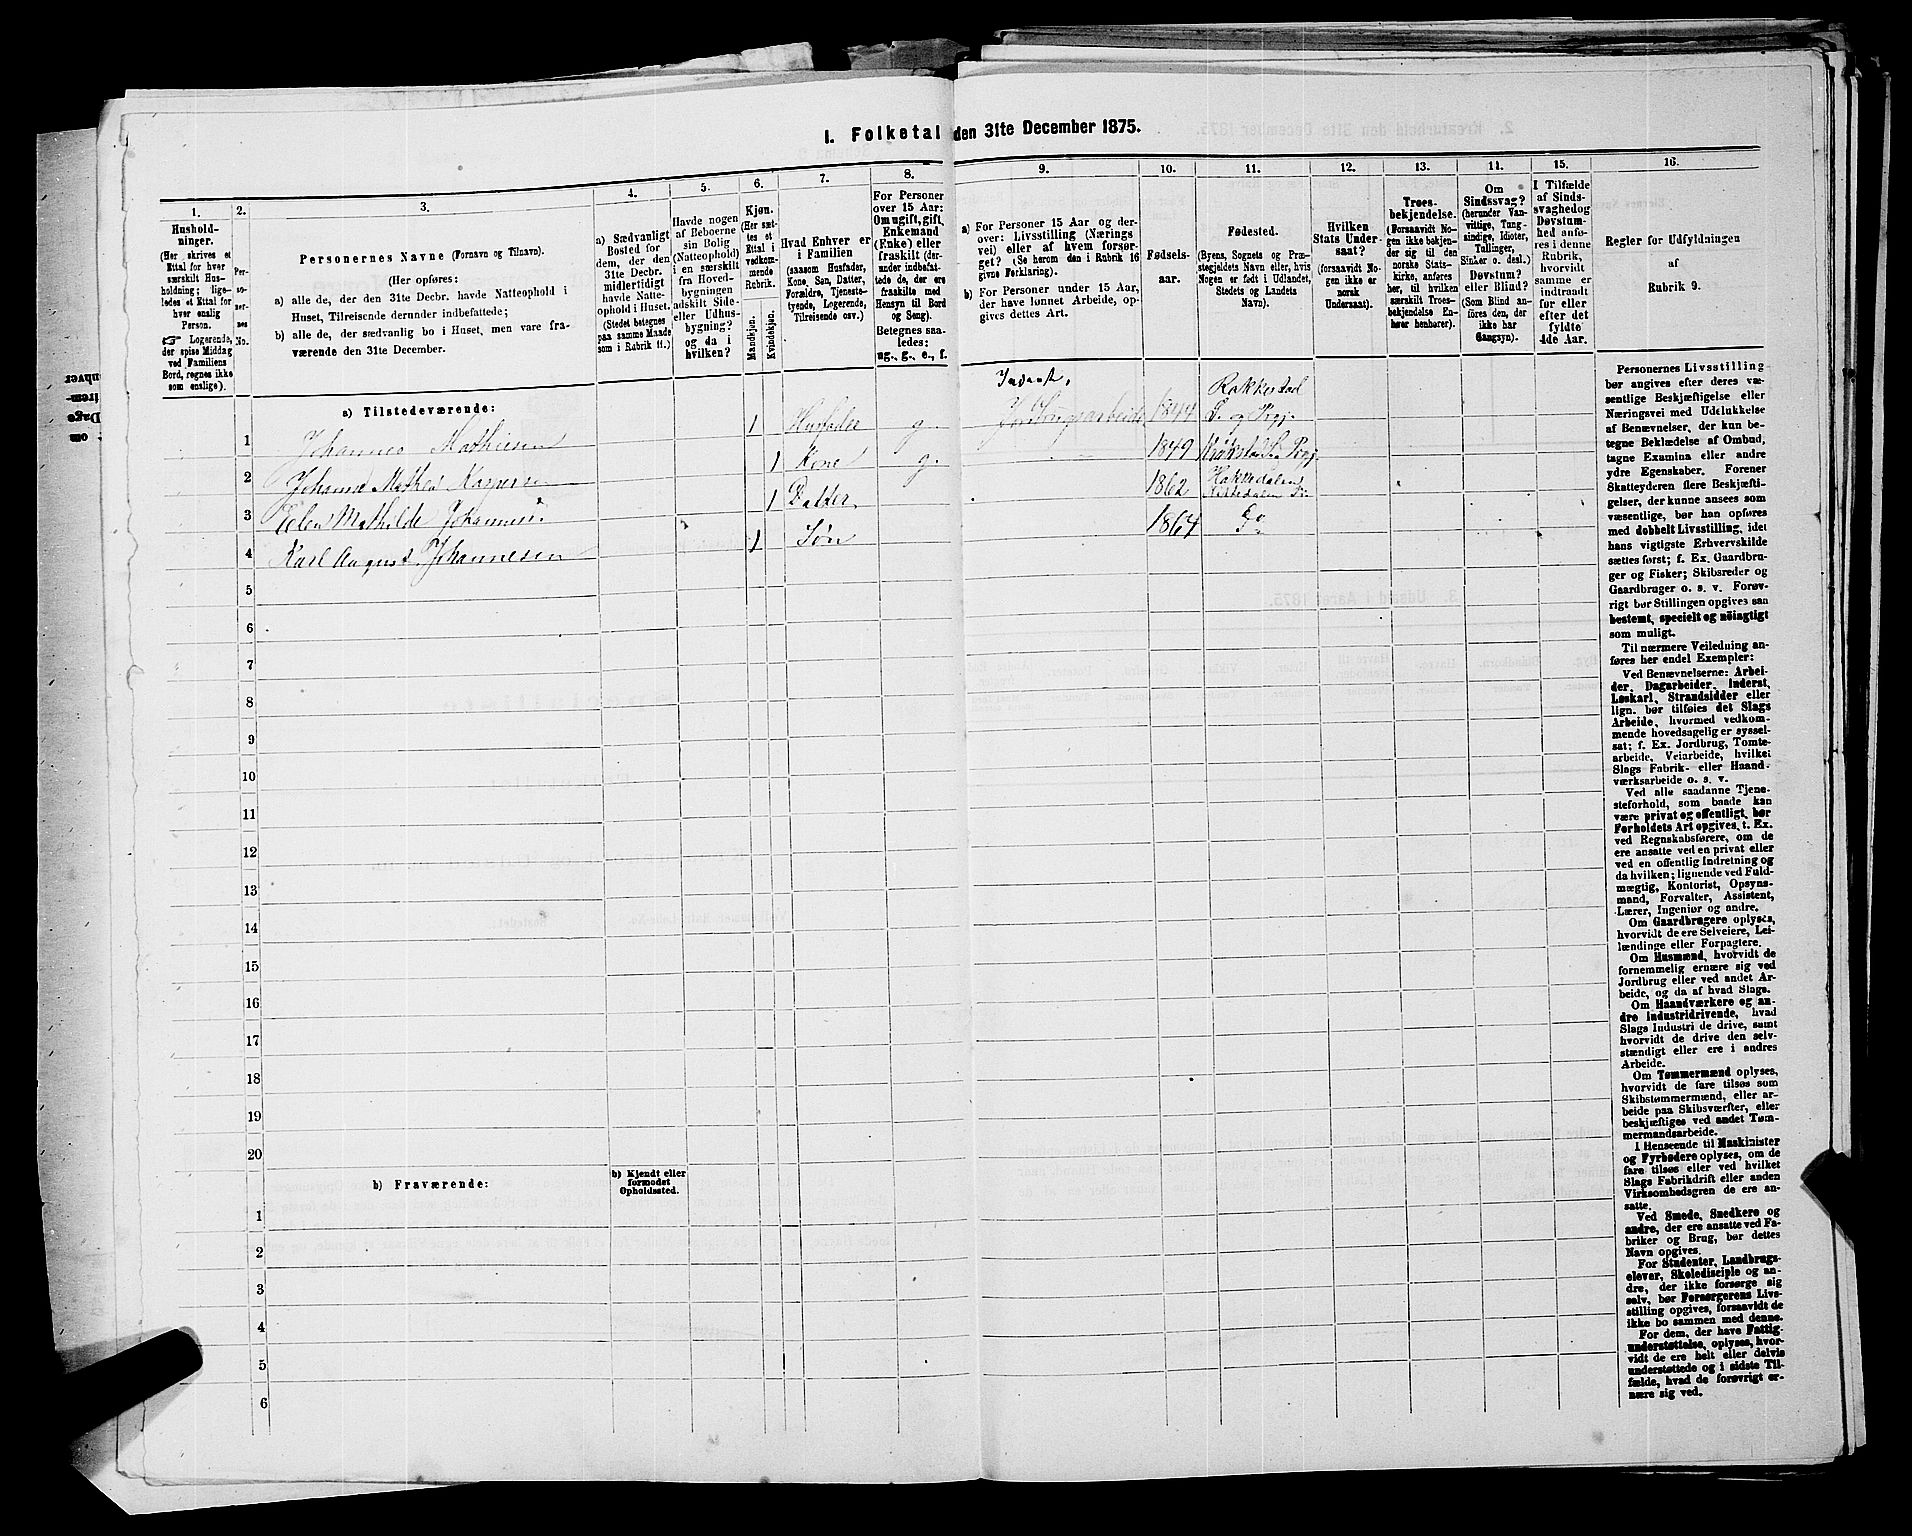 I. Folketal den 31te December 1875.
1.
Hushold-
ninger.
(Her skrives et
Ettal for hver
særskilt Hus-
holdning; lige-
ledes et Ettal for
hver enslig
Person.
☞ Logerende,
der spise Middag
ved Familiens
Bord, regnes ikke
som enslige).
2.
Per-
so-
ner-
nes
No.
3.
Personernes Navne (Fornavn og Tilnavn).
(Her opføres:
a) alle de, der den 31te Decbr. havde Natteophold i
Huset, Tilreisende derunder indbefattede;
b) alle de, der sædvanlig bo i Huset, men vare fra-
værende den 31te December.
4.
a) Sædvanligt
Bosted for
dem, der den
31te Decbr.
midlertidigt
havde Natte-
ophold i Huset.
(Stedet betegnes
paa samme Maade
som i Rubrik 11.)
5.
Havde nogen
af Beboerne
sin Bolig
(Natteophold)
i en særskilt
fra Hoved-
bygningen
adskilt Side-
eller Udhus-
bygning?
og da i
hvilken?
6.
Kjøn.
(Her sæt-
tes et
Ettal i
vedkom-
mende
Rubrik.
Mandkjøn.
Kvindekjøn.
7.
Hvad Enhver er
i Familien
(saasom Husfader,
Kone, Søn, Datter,
Forældre, Tjeneste-
tyende, Logerende,
Tilreisende osv.)
8.
For Personer
over 15 Aar:
Om ugift, gift,
Enkemand
(Enke) eller
fraskilt (der-
under indbefat-
tede de, der ere
fraskilte med
Hensyn til Bord
og Seng).
Betegnes saa-
ledes:
ug., g., e., f.
9.
a) For Personer 15 Aar og der-
over: Livsstilling (Nærings
vei) eller af hvem forsør-
get? (Se herom den i Rubrik 16
givne Forklaring).
b) For Personer under 15 Aar,
der have lønnet Arbeide, op-
gives dettes Art.
10.
Fødsels-
aar.
11.
Fødested.
(Byens, Sognets og Præ-
stegjeldets Navn eller, hvis
Nogen er født i Udlandet,
Stedets og Landets
Navn).
12.
Hvilken
Stats Under-
saat?
(forsaavidt No-
gen ikke er
norsk
Undersaat).
13.
Troes-
bekjendelse.
(Forsaavidt No-
gen ikke bekjen-
der sig til den
norske Stats-
kirke, anføres
her, til hvilken
særskilt Troes-
bekjendelse En-
hver henhører).
14.
Om
Sindssvag?
(herunder Van-
vittige, Tung-
sindige, Idioter,
Tullinger,
Sinker o. desl.)
Døvstum?
eller Blind?
(Som Blind an-
føres den, der
ikke har
Gangsyn).
15.
I Tilfælde
af Sinds-
svaghed og
Døvstum-
hed anfø-
res i denne
Rubrik,
hvorvidt
samme er
indtraadt
før eller
efter det
fyldte
4de Aar.
16.
Regler for Udfyldningen
af
Rubrik 9.
a) Tilstedeværende:
Inderst, Rakkestad
1 Johannes Mathiesen 1 Husfader g. Jordbrugsarbeide 1844 S. og Prgj.
2 Johanne Mathea 1 Kone g. 1849
3 Elen Mathilde 1 Datter 1862 Hakkedalen
4 Karl August Johannesen 1 Søn 1864 Do
5
6
7
8
9
10
11
12
13
14
15
16
17
18
19
20
b) Fraværende:
b) Kjendt eller
formodet
Opholdssted.
1
2
3
4
5
6
Personernes Livsstilling
bør angives efter deres væ-
sentlige Beskjæftigelse eller
Næringsvei med Udelukkelse
af Benævnelser, der kun be-
tegne Beklædelse af Ombud,
tagne Examina eller andre
ydre Egenskaber. Forener
Skatteyderen flere Beskjæfti-
gelser, der kunne ansees som
væsentlige, bør han opføres
med dobbelt Livsstilling, idet
hans vigtigste Erhvervskilde
sættes først; f. Ex. Gaardbru-
ger og Fisker; Skibsreder og
Gaardbruger o. s. v. Forøv-
rigt bør Stillingen opgives saa
bestemt, specielt og nöiagtigt
som muligt.
Til nærmere Veiledning an-
føres her endel Exempler:
Ved Benævnelserne: Arbei-
der, Dagarbeider, Inderst,
Løskarl, Strandsidder eller
lign. bør tilføies det Slags
Arbeide, hvormed vedkom-
mende hovedsagelig er syssel-
sat; f. Ex. Jordbrug, Tomte-
arbeide, Veiarbeide, hvilket
Slags Fabrik- eller Haand-
værksarbeide o. s. v.
Ved alle saadanne Tjene-
steforhold, som baade kan
være privat og offentligt, bør
Forholdets Art opgives, t. Ex.
ved Regnskabsførere, om de
ere ansatte ved en privat eller
ved en offentlig Indretning og
da hvilken; lignende ved Fuld-
mægtig, Kontorist, Opsyns-
mand, Forvalter, Assistent,
Lærer, Ingeniør og andre.
Om Gaardbrugere oplyses,
hvorvidt de ere Selveiere, Lei-
lændinge eller Forpagtere.
Om Husmænd, hvorvidt de
fornemmelig ernære sig ved
Jordbrug eller ved andet Ar-
beide, og da af hvad Slags.
Om Haandværkere og an-
dre Industridrivende, hvad
Slags Industri de drive, samt
hvorvidt de drive den selv-
stændigt eller ere i andres
Arbeide.
Om Tømmermænd oplyses,
hvorvidt de fare tilsøs som
Skibstømmermænd, eller ar-
beide paa Skibsværfter, eller
beskjæftiges ved andet Tøm-
mermandsarbeide.
I Henseende til Maskinister
og Fyrbødere oplyses, om de
fare tilsøs eller ved hvilket
Slags Fabrikdrift eller anden
Virksombedsgren de ere an-
satte.
Ved Smede, Snedkere og
andre, der ere ansatte ved Fa-
briker og Brug, bør dettes
Navn opgives.
For Studenter, Landbrugs-
elever, Skoledisciple og an-
dre, der ikke forsørge sig
selv, bør Forsørgerens Livs-
stilling opgives, forsaavidt de
ikke bo sammen med denne.
For dem, der have Fattig-
understøttelse, oplyses, hvor-
vidt de ere helt eller delvis
understøttede og i sidste Til-
fælde, hvad de forøvrigt er-
nære sig ved.